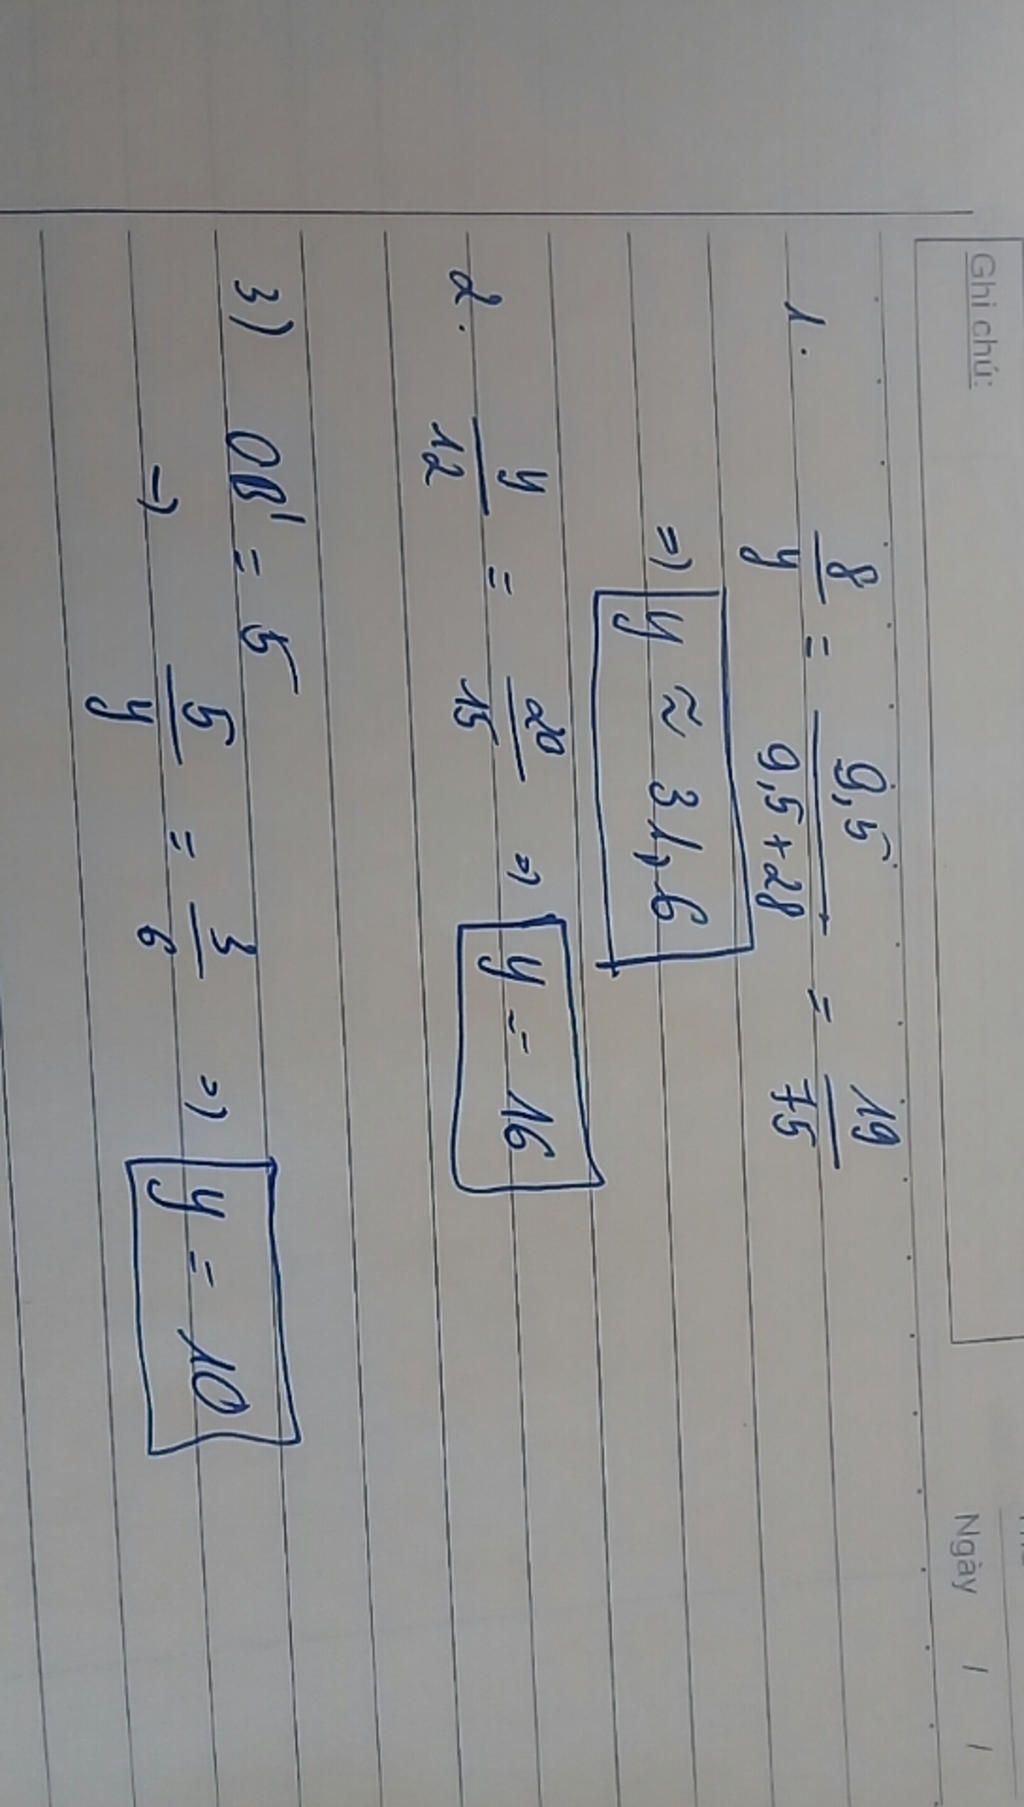 Ghi chú:
Ngày / /
1. 8/y = 9,5/9,5+28 = 19/75
=) y ≈ 31,6
2. y/12 = 20/15 =) y = 16
3) OB' = 5
=) 5/y = 3/6 =) y = 10